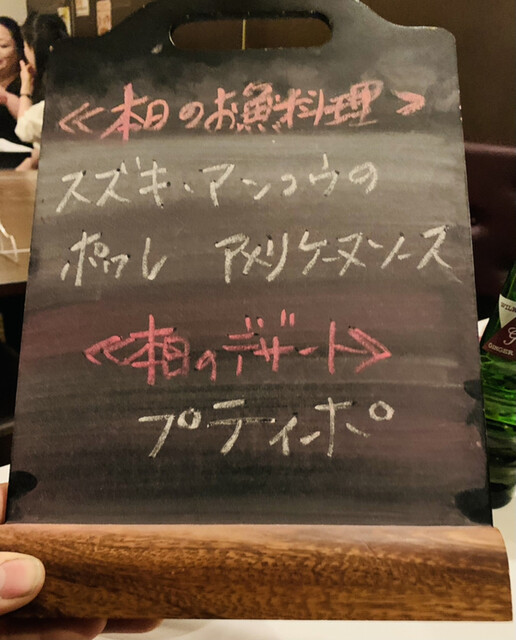 ≪本日のお魚料理>
スズキ、アンコウの
ポワレ アメリケーヌソース
≪本日のデザート≫
プティーポ